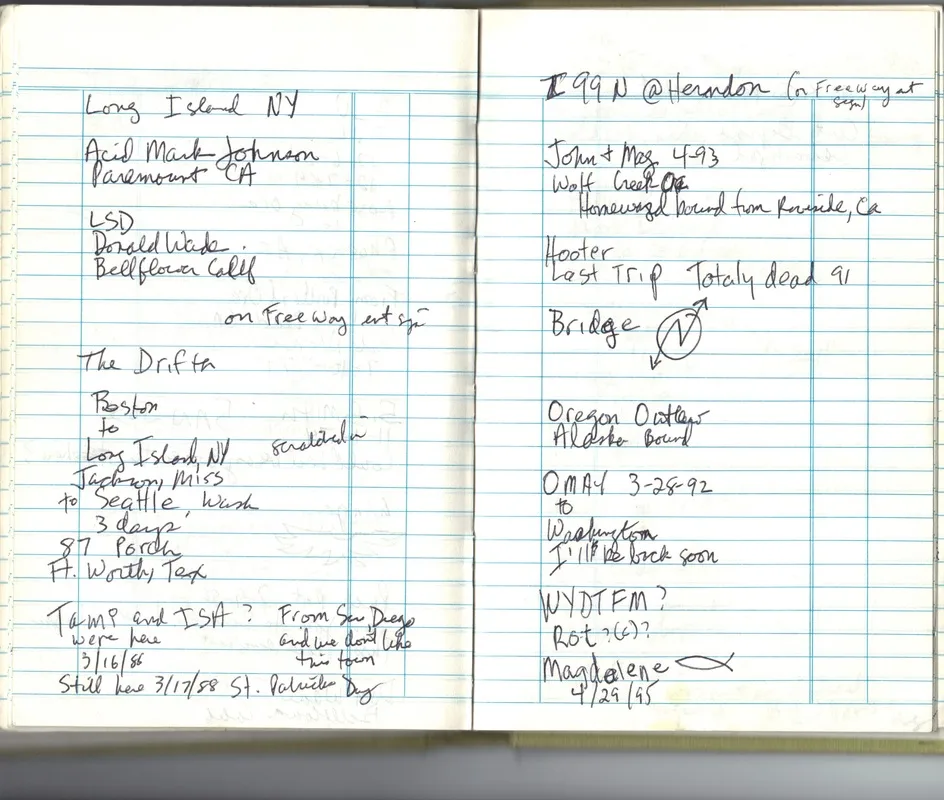 Long Island NY
Acid Mark Johnson
Paramount CA
LSD
Donald Wade.
Bellflower Calif
on Freeway ent sgn
The Drifter
Boston
to
Long Island, NY scratched in
Jackson, Miss
to Seattle, Wash
3 days
87 Porch
Ft. Worth, Tex
Tami and ISA?
were here
3/16/88
From San Diego
and we don't like
this town
Still here 3/17/88 St. Patricks Day
I 99 N @ Herndon (on Freeway at
sign)
John + Mag 4-93
Wolf Creek
Homeward bound from Riverside, Ca
Hooter
Last Trip Totaly dead 91
Bridge N
Oregon Outlaw
Alaska Bound
OMAY 3-28-92
to
Washington
I'll be back soon
WYDTFM?
Rot ?(c)?
Magdelene
4/29/95